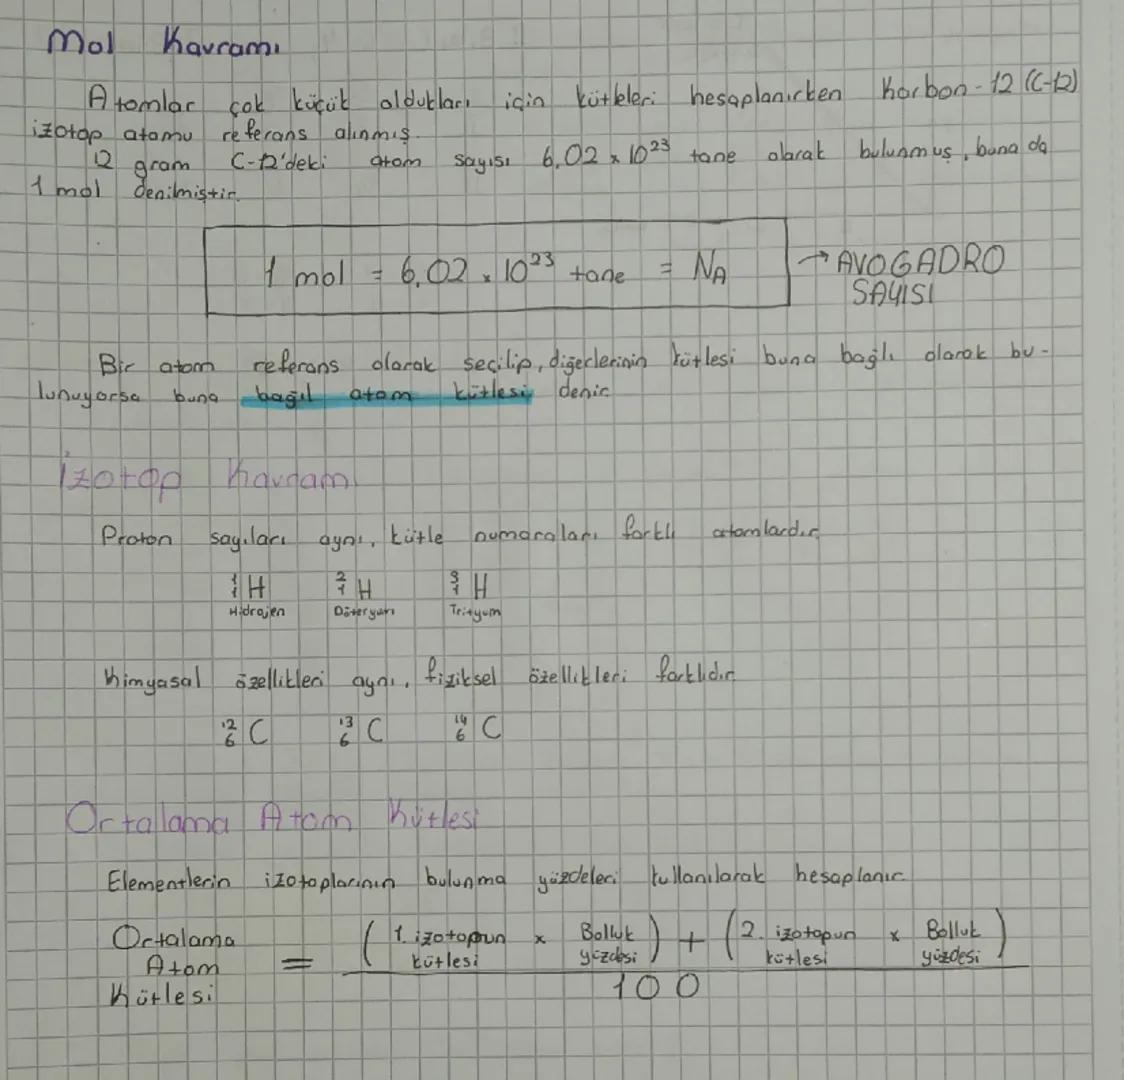 Mol Kavramı
Atomlar çok küçük oldukları için kütleleri hesaplanırken Karbon-12 (C-12)
izotop atomu referans alınmış.
12 gram C-12'deki atom sayısı 6,02 x 10²³ tane olarak bulunmuş, buna da
1 mol denilmiştir.
1 mol = 6,02 x 10²³ tane = NA → AVOGADRO
SAYISI
Bir atom referans olarak seçilip, diğerlerinin kütlesi buna bağlı olarak bu-
lunuyorsa buna bağıl atom kütlesi denir.
İzotop Kavramı
Proton sayıları aynı, kütle numaraları farklı atomlardır.
¹₁H ²₁H ³₁H
Hidrojen Döteryum Trityum
Kimyasal özellikleri aynı, fiziksel özellikleri farklıdır.
¹²₆C ¹³₆C ¹⁴₆C
Ortalama Atom Kütlesi
Elementlerin izotoplarının bulunma yüzdeleri kullanılarak hesaplanır.
Ortalama
Atom
Kütlesi
=
(1. izotopun kütlesi x Bolluk yüzdesi) + (2. izotopun kütlesi x Bolluk yüzdesi)
100